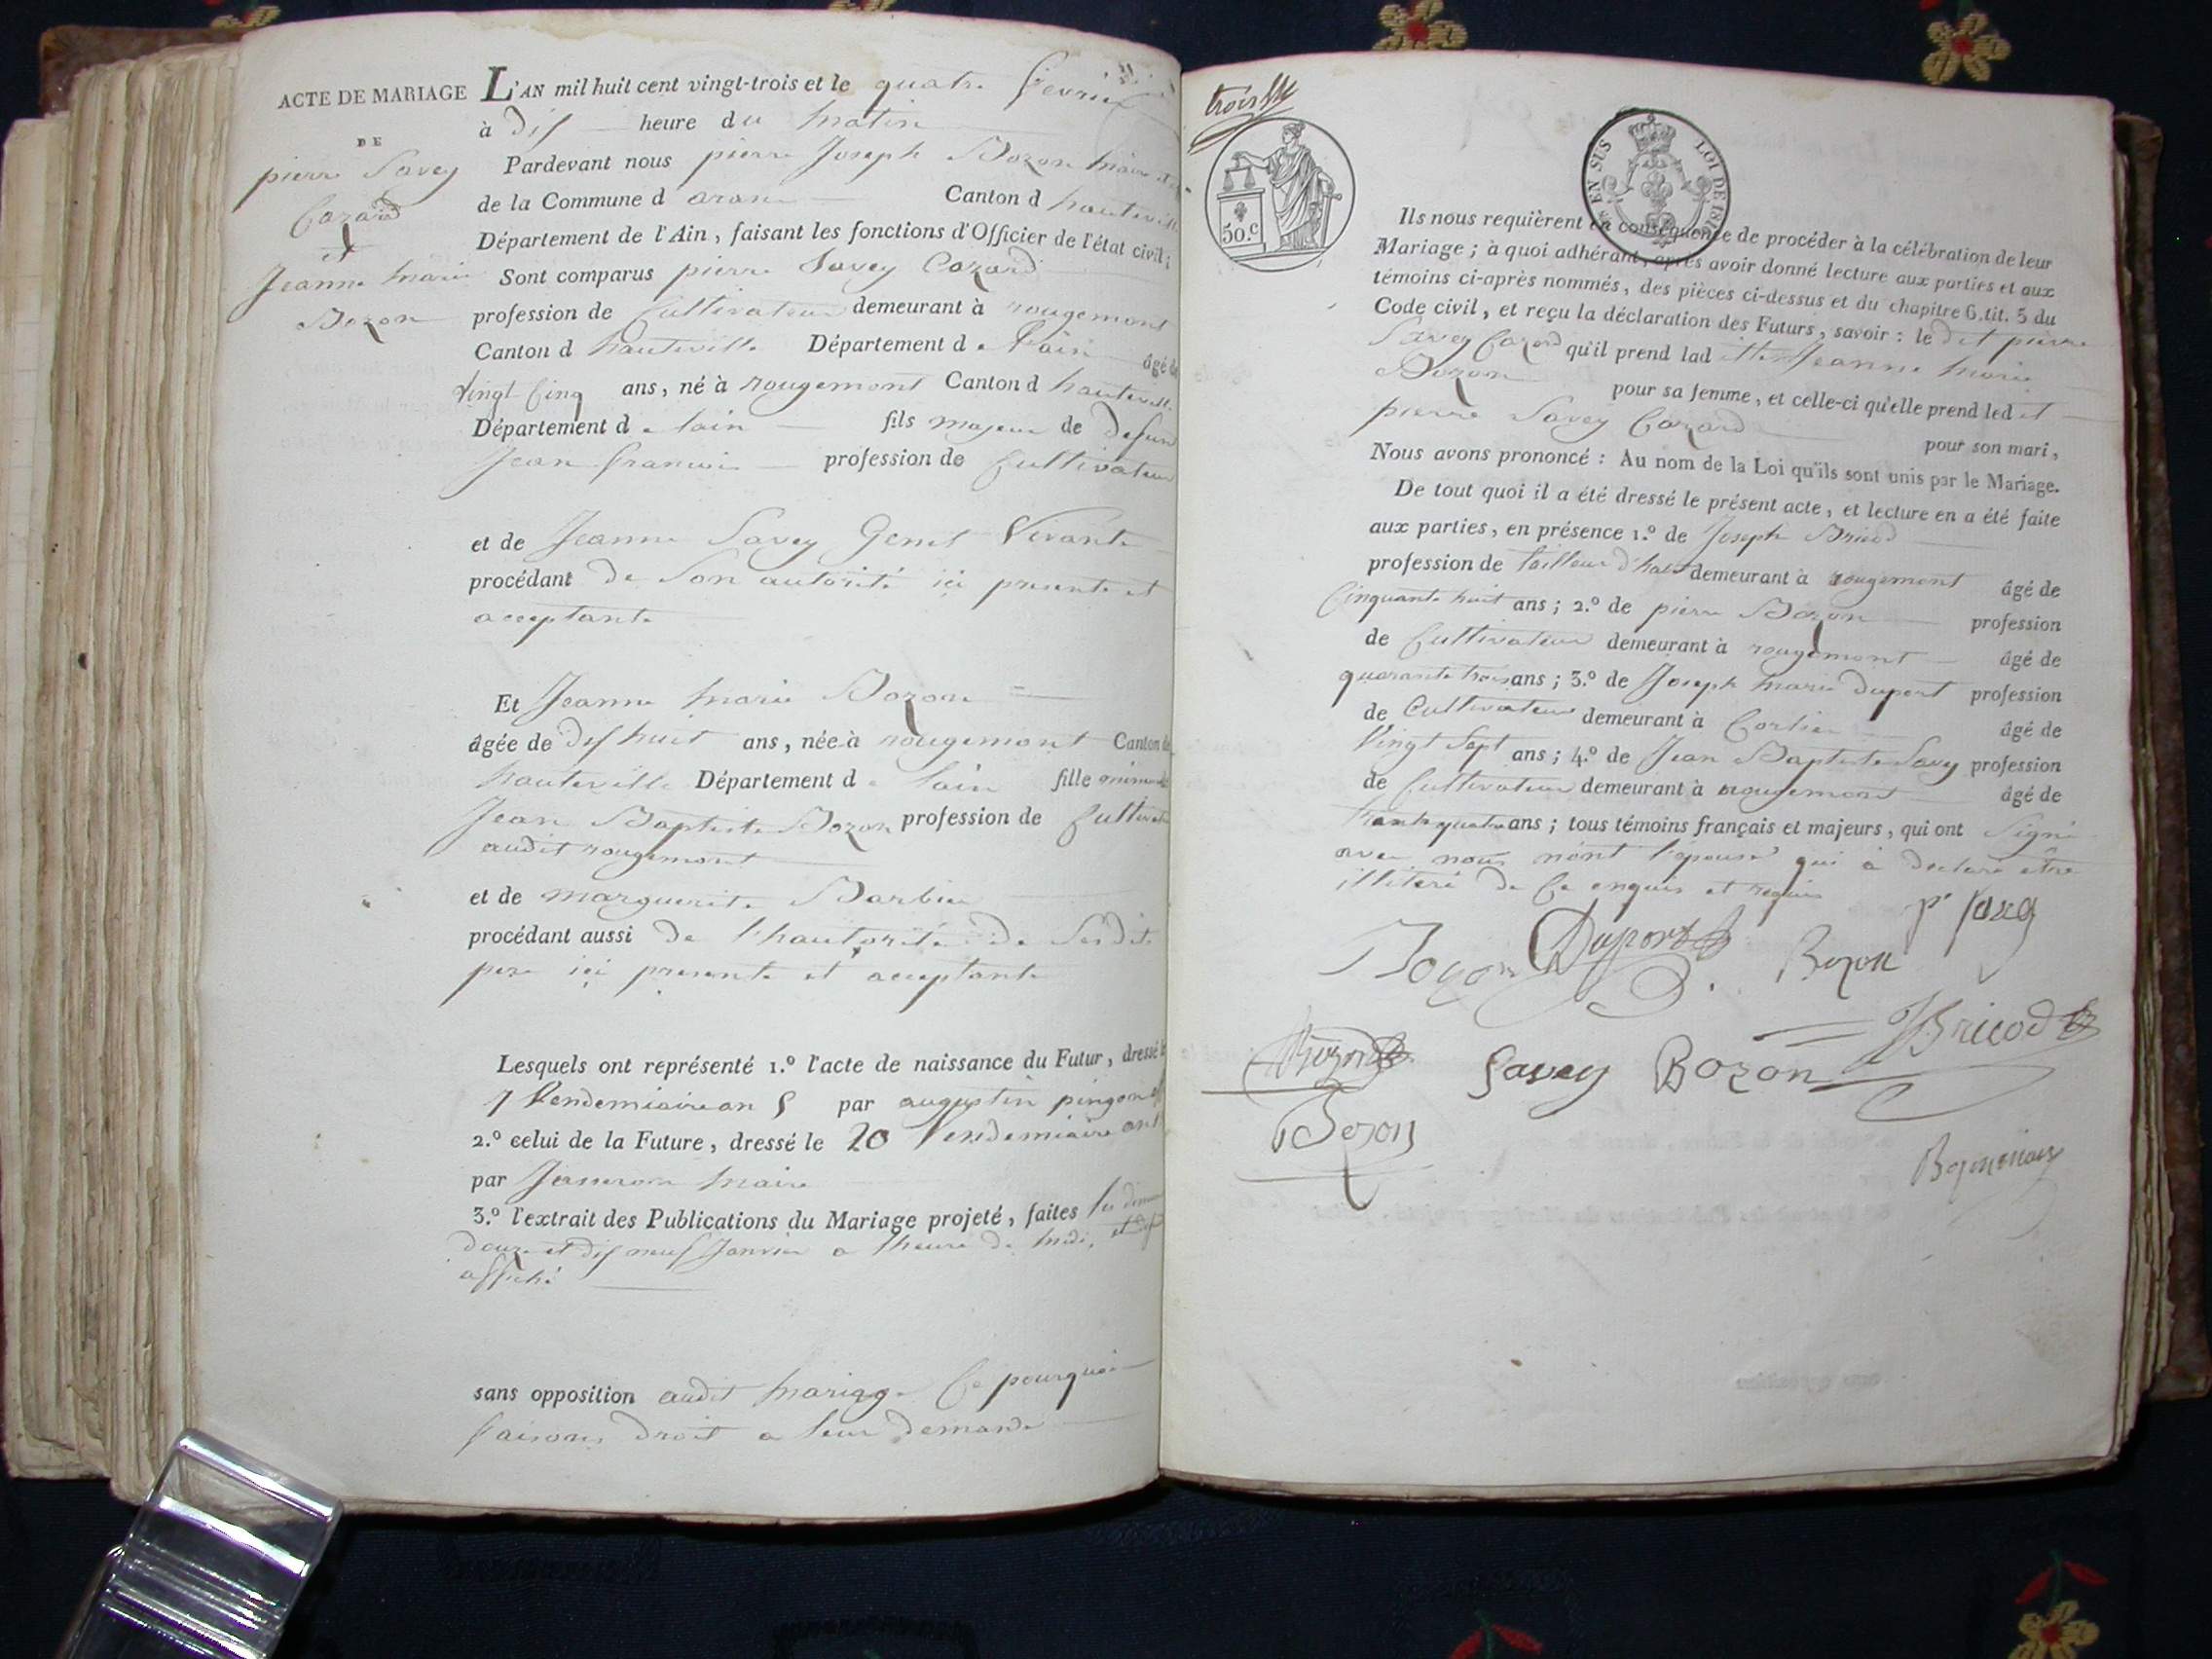 ACTE DE MARIAGE
DE
pierre Savey
Cozard
et
Jeanne marie
Bozon
L'AN mil huit cent vingt-trois et le quatre fevrier
à dis heure du matin
Pardevant nous pierre Joseph Bozon maire
de la Commune d aranc Canton d hauteville
Département de l'Ain, faisant les fonctions d'Officier de l'état civil;
Sont comparus pierre Savey Cozard
profession de Cultivateur demeurant à rougemont
Canton d hauteville Département de lain âgé de
vingt Cinq ans, né à rougemont Canton d hauteville
Département de lain fils majeur de defun
Jean francois profession de Cultivateur
et de Jeanne Savey Genet Vivante
procédant de Son autorité ici presente et
acceptante
Et Jeanne marie Bozon
âgée de dishuit ans, née à rougemont Canton de
hauteville Département de lain fille
Jean Baptiste Bozon profession de Cultivateur
audit rougemont
et de marguerite Barbier
procédant aussi de l'hautorité de Sesdit
pere ici presente et acceptante
Lesquels ont représenté 1.º l'acte de naissance du Futur, dressé le
Vendemiaire an par augustin pingon
2.º celui de la Future, dressé le 20 Vendemiaire an
par maire
3.º l'extrait des Publications du Mariage projeté, faites
douze et dis neuf Janvier a lheure de midi, et
affiché
sans opposition audit mariage Ce pourquoi
faisons droit a leur demande
trois
50.c
EN SUS
LOI DE
Ils nous requièrent en conséquence de procéder à la célébration de leur
Mariage; à quoi adhérant, après avoir donné lecture aux parties et aux
témoins ci-après nommés, des pièces ci-dessus et du chapitre 6. tit. 5 du
Code civil, et reçu la déclaration des Futurs, savoir: le dit pierre
Savey Cozard qu'il prend laditte Jeanne marie
Bozon pour sa femme, et celle-ci qu'elle prend ledit
pierre Savey Cozard pour son mari,
Nous avons prononcé: Au nom de la Loi qu'ils sont unis par le Mariage.
De tout quoi il a été dressé le présent acte, et lecture en a été faite
aux parties, en présence 1.º de Joseph Bricod
profession de tailleur d'habit demeurant à rougemont âgé de
Cinquante huit ans; 2.º de pierre Bozon profession
de Cultivateur demeurant à rougemont âgé de
quarante trois ans; 3.º de Joseph marie duport profession
de Cultivateur demeurant à Corlier âgé de
Vingt Sept ans; 4.º de Jean Baptiste Savey profession
de Cultivateur demeurant à rougemont âgé de
trente quatre ans; tous témoins français et majeurs, qui ont Signé
avec nous l'épouse qui à declaré être
illiteré de Ce enquis et requis
Bozon Duport Bozon
Bozon Savey Bozon JBricod
Bozon